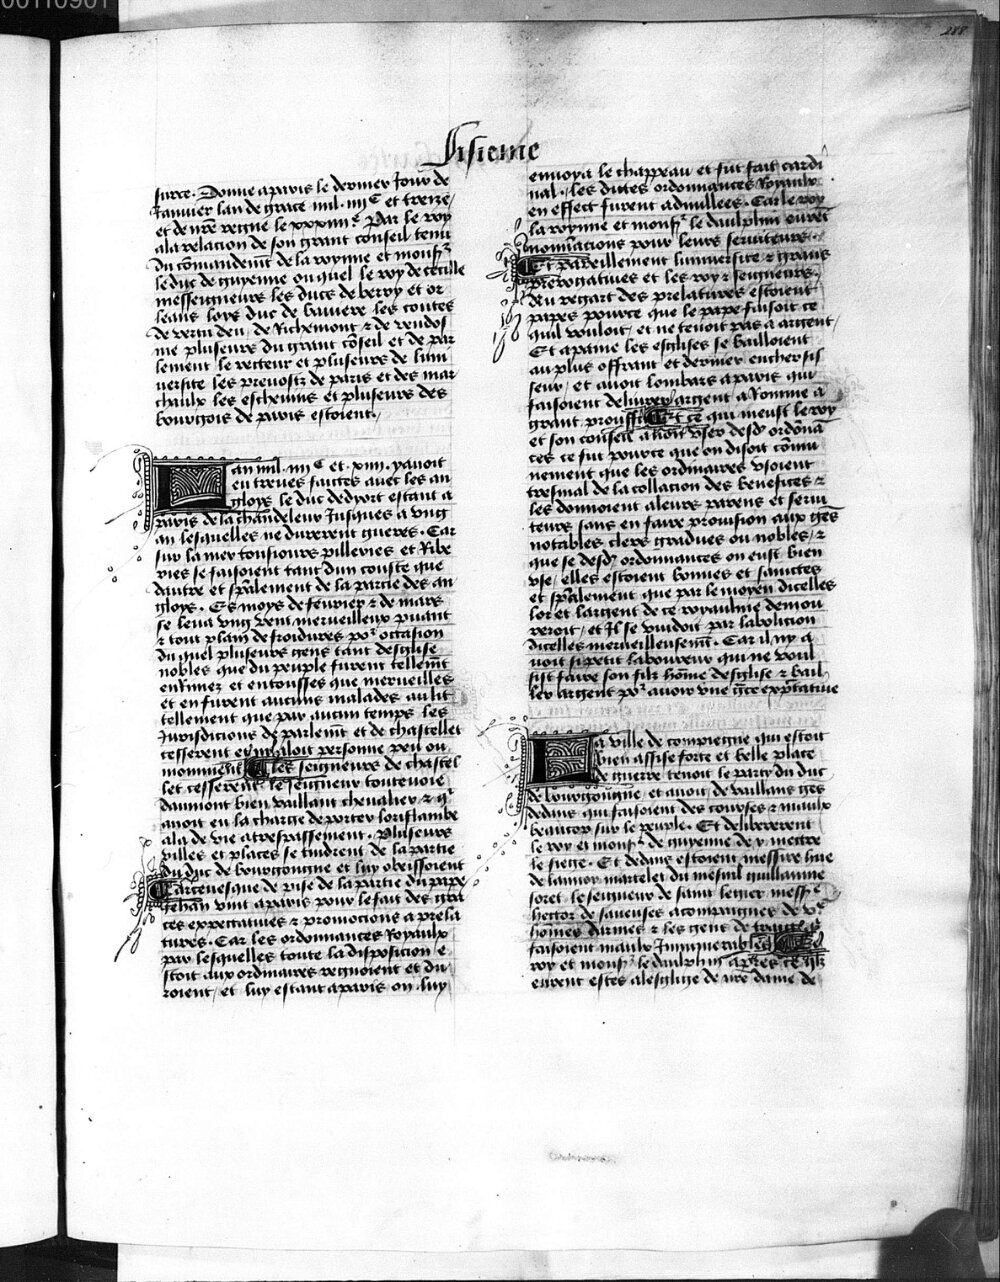 00110901
288
Sisieme
surce. Donne a paris le dernier jour de
Januier lan de grace mil. iiijc et treze/
et de nre regne le xxxiiije. Par le roy
a la relacion de son grant conseil tenu
du cõmandemt de la royne et monsr
le duc de guyenne ou quel le roy de cecille
messeigneurs les ducs de berry et or
leans loys duc de bauiere les contes
de vertu deu, de Richemont & de vendos
me plusieurs du grant cõseil et de par
lement le recteur et plusieurs de luni
uersite les preuostz de paris et des mar
chaulx les escheuins et plusieurs des
bourgois de paris estoient.
Lan mil. iiijc et. xiiij. y auoit
en treues faictes auec les an
gloys le duc dedyort estant a
paris de la chandeleur Jusques a vng
an lesquelles ne durerent gueres. Car
sur la mer tousiours pilleries et Robe
ries se faisoient tant dun couste que
dautre et spãlement de la partie des an
gloys. Es moys de feurier & de mars
se leua vng vent merueilleux puant
& tout plain de froidures por occasion
du quel plusieurs gens tant desglise
nobles que du peuple furent tellemt
enrimez et entousses que merueilles
et en furent aucuns malades au lit
tellement que par aucun temps les
Jurisdicions de parlemt et de chastellet
cesserent et ny aloit personne peu ou
nonment Les seigneurs de chastel
let cesserent le seigneur toutevoie
daumont bien vaillant cheualier &
auoit eu la charge de porter loriflambe
ala de vie a trespassement. Plusieurs
villes et places se tindrent de la partie
du duc de bourgongne et luy obeissoient
Larceuesque de pise de la partie du pape
Jehan vint a paris pour le fait des gra
ces expectatiues & promocions a prela
tures. Car les ordonnances Royaulx
par lesquelles toute la disposicion e
stoit aux ordinaires regnoient et du
roient, et luy estant a paris on luy
enuoya le chappeau et fut fait cardi
nal. les dittes ordonnances Royaulx
en effect furent adnullees. Car le roy
la royne et monsr le daulphin eurẽt
nominacions pour leurs seruiteurs.
Et pareillement luniuersite & grans
prerogatiues et les roy & seigneurs.
Au regart des prelatures estoient
papes pource que le pape faisoit ce
quil vouloit, et ne tenoit pas a argent,
Et a paine les esglises se bailloient
au plus offrant et dernier encheris
seur, et auoit lombars a paris qui
faisoient deliurer argent a Romme a
grant prouffit Et ce qui meust le roy
et son conseil a non vser desd ordõnã
ces ce fut pource que on disoit cõmu
nement que les ordinaires vsoient
tresmal de la collacion des benefices &
les donnoient a leurs parens et serui
teurs sans en faire prouision aux gẽs
notables clers gradues ou nobles, &
que se desd ordonnances on eust bien
vse, elles estoient bonnes et sainctes
et spãlement que par le moyen dicelles
lor et largent de ce royaulme demou
reroit, et Il se vuidoit par labolicion
dicelles merueilleusemt. Car il ny a
uoit si petit laboureur qui ne voul
sist faire son filz hõme desglise & bail
ler argent por auoir vne grce expectatiue
La ville de compiegne qui estoit
bien assise forte et belle place
de guerre tenoit le party du duc
de bourgongne et auoit de vaillans gẽs
dedans qui faisoient des courses & maulx
beaucop sur le peuple. Et delibererent
le roy et monsr de guyenne de y mettre
le siege. Et dedans estoient messire hue
de launoy martelet du mesnil guillaume
soret le seigneur de saint legier messre
hector de saueuses acompaignes de vc
hõmes darmes & les gens de traict et
faisoient maulx Innumerables Le
roy et monsr le daulphin apres ce quilz
eurent estes a lesglise de nre dame de